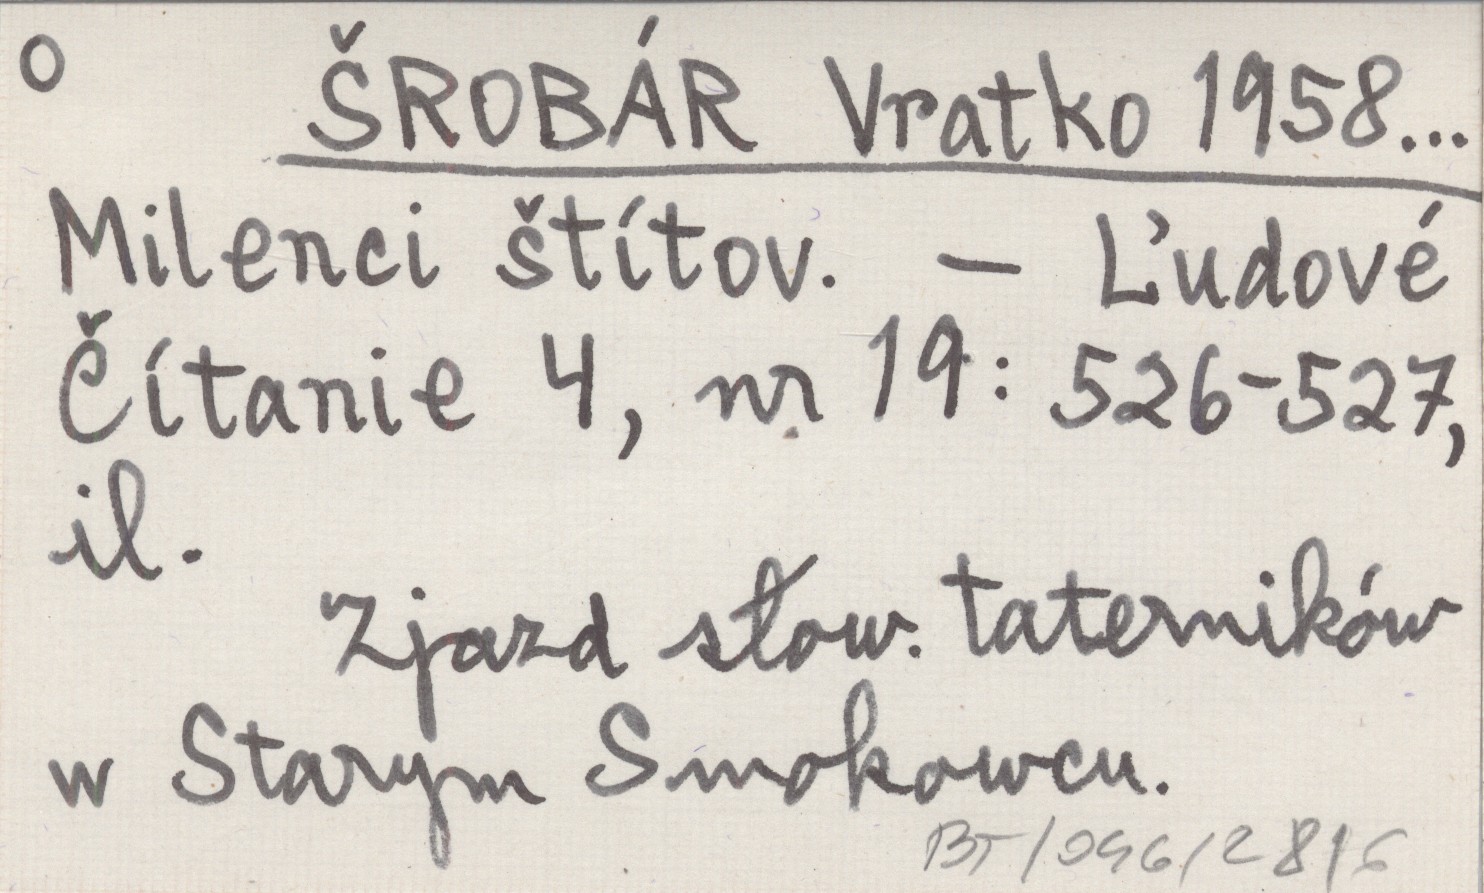 o ŠROBÁR Vratko 1958...
Milenci štítov. – Ľudové
Čítanie 4, nr 19: 526-527,
il.
Zjazd słow. taterników
w Starym Smokowcu.
BT/096/2816